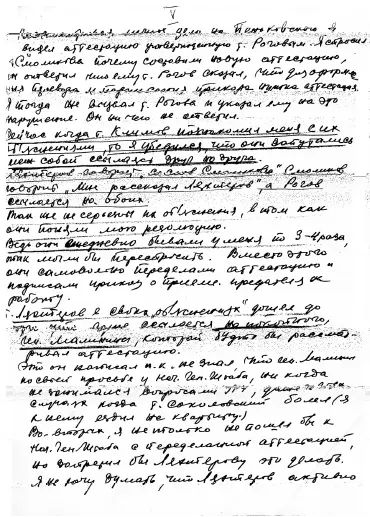 V
личное дело на Пеньковского я
видел аттестацию утвержденную г. Роговым. Я спросил
Смоликова почему составили новую аттестацию,
он ответил что ему г. Рогов сказал, что для оформле-
ния приказа нужна аттестация
Я тогда же вызвал г. Рогова и указал ему на это
нарушение. Он ни чего не ответил.
Сейчас когда г. Климов познакомил меня с их
объяснениями, то я убедился, что они запутались
меж собой ссылаются друг на друга.
говорит, Смоликов
говорит „Мне рассказал Лахтеров", а Рогов
ссылается на обоих.
Так же не серьезны их объяснения, в том как
они поняли мою резолюцию.
Ведь они ежедневно бывали у меня по 3-4 раза,
так могли бы переспросить. Вместо этого
они самовольно переделали аттестацию и
подписали приказ о приеме на
работу.
Лахтеров в своих объяснениях дошел до
того что даже ссылается на покойного,
ген. Маланина, который будто бы рассмат-
ривал аттестацию.
Это он написал п.к. не зная что ген. Маланин
по своей просьбе у Нач. Ген. Штаба, ни когда
не занимался вопросами ГРУ, даже в тех
случаях когда г. Соколовский болел (я
к нему ездил на квартиру.)
Во-вторых, я не только не пошел бы к
Нач. Ген. Штаба с переделанной аттестацией,
но запретил бы Лахтерову это делать.
Я не хочу думать, что Лахтеров активно